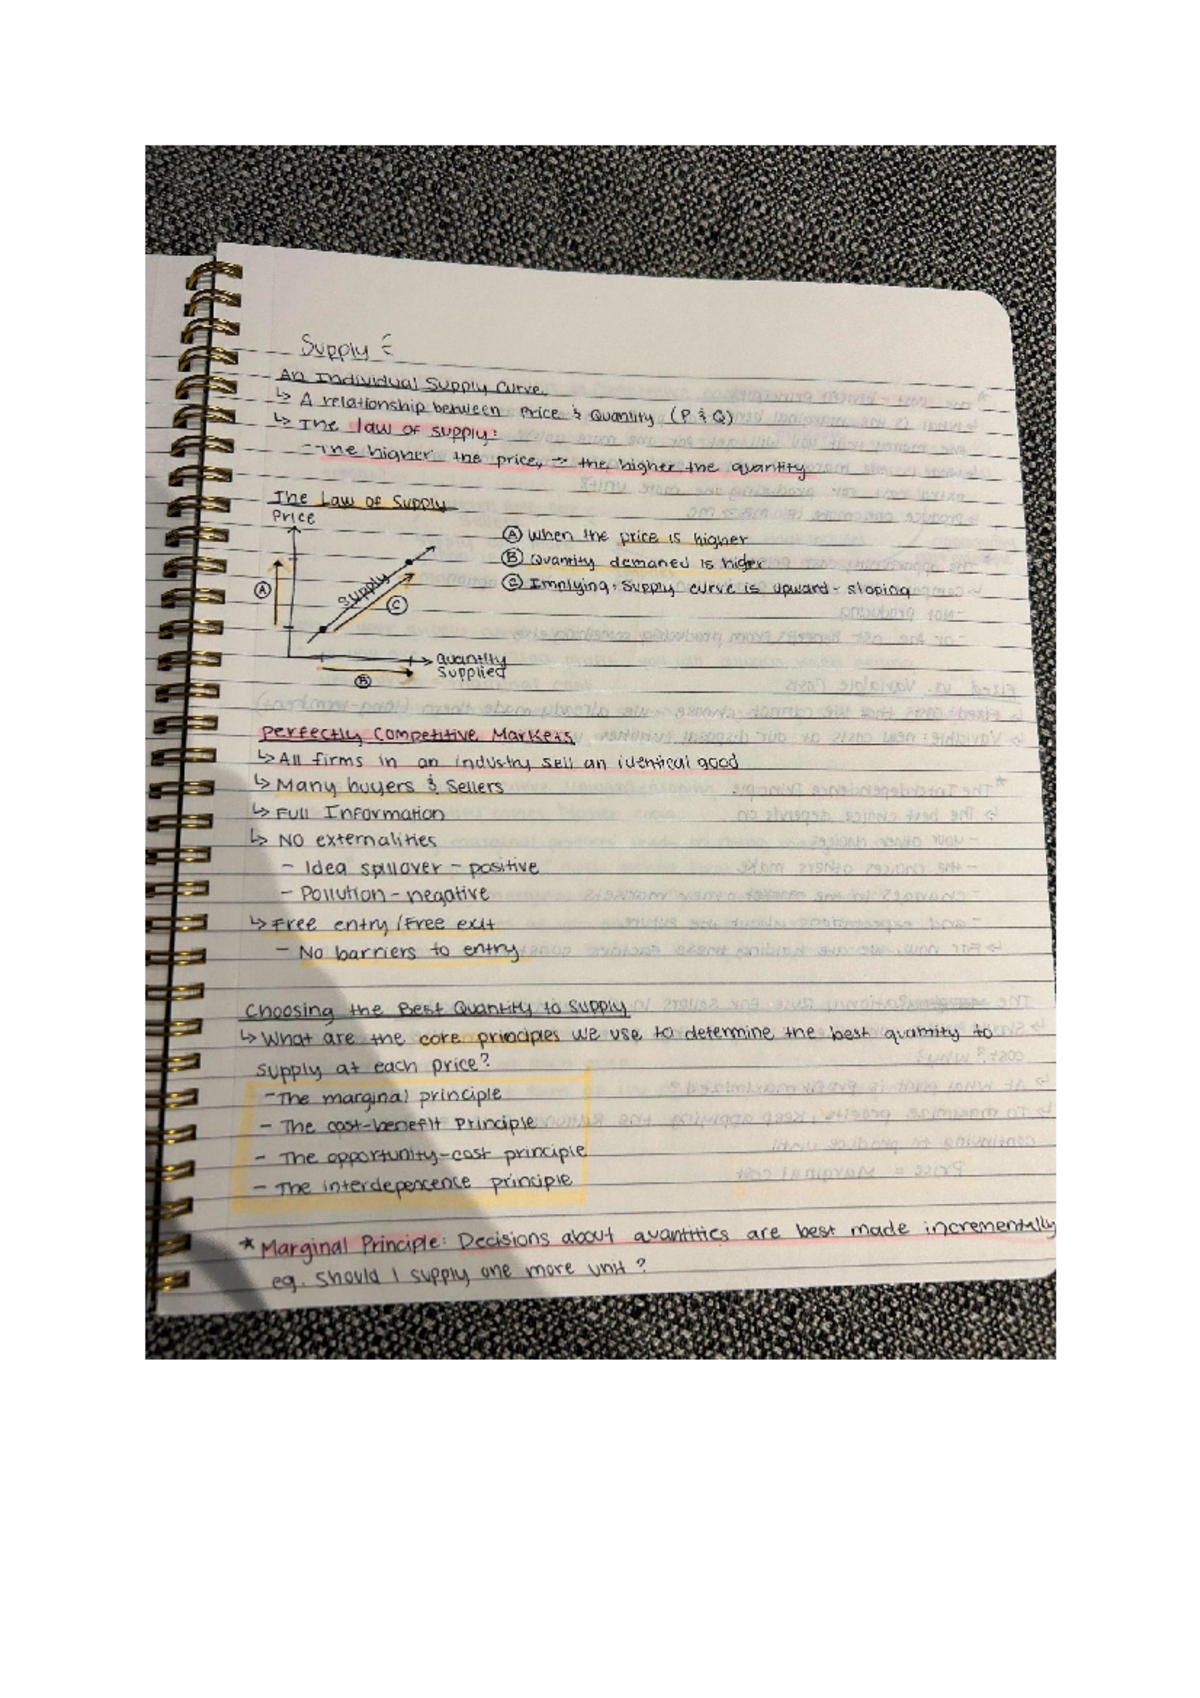 Supply
An Individual Supply Curve.
↳ A relationship between Price & Quantity (P & Q)
↳ The law of supply:
- The higher the price, → the higher the quantity
The Law of Supply
Price
Ⓐ When the price is higher
Ⓑ Quantity demaned is higer
Ⓒ Implying: Supply curve is upward-sloping
Supply
Ⓐ
Ⓒ
Quantity
Supplied
Ⓑ
Perfectly Competitive Markets
↳ All firms in an industry sell an identical good
↳ Many buyers & Sellers
↳ Full Information
↳ NO externalities
- Idea spillover - positive
- Pollution - negative
↳ Free entry / Free exit
- No barriers to entry
Choosing the Best Quantity to Supply
↳ What are the core principles we use to determine the best quantity to
supply at each price?
- The marginal principle
- The cost-benefit Principle
- The opportunity-cost principle
- The interdepencence principle
* Marginal Principle: Decisions about quantities are best made incrementally
eg. Should I supply one more unit?